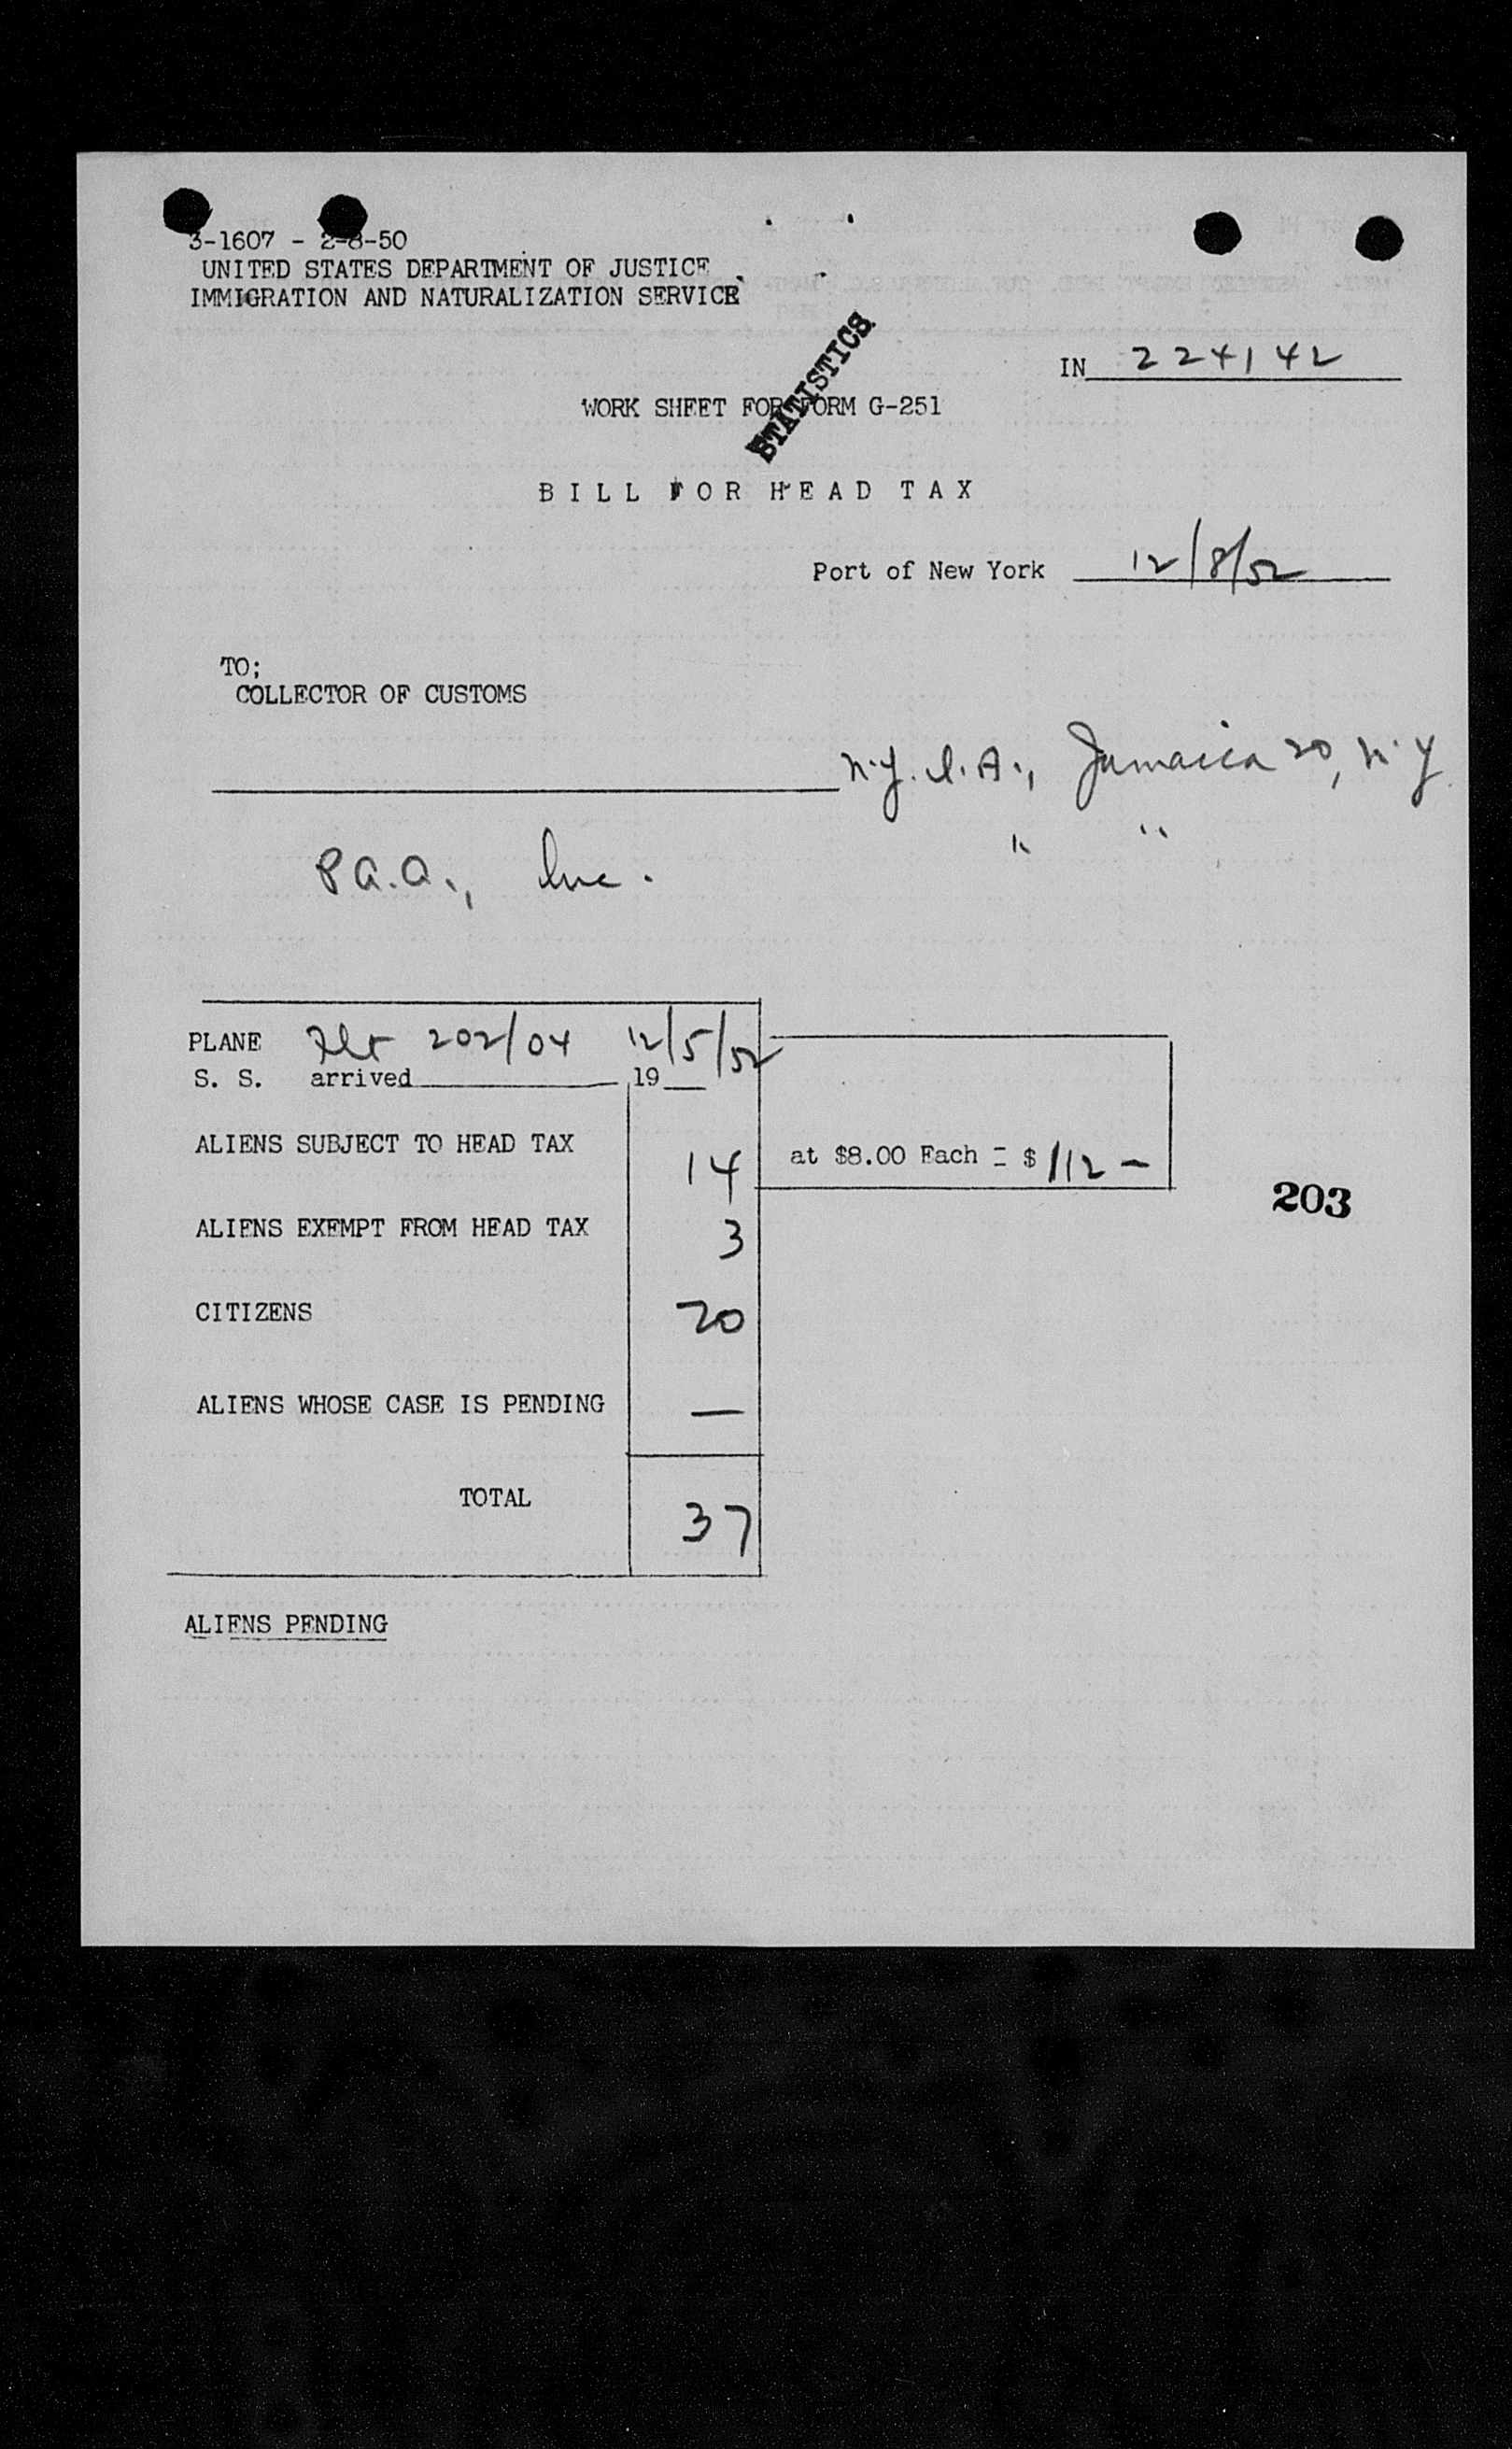 3-1607 - 2-8-50
UNITED STATES DEPARTMENT OF JUSTICE
IMMIGRATION AND NATURALIZATION SERVICE
STATISTICS
IN 224142
WORK SHEET FOR FORM G-251
BILL FOR HEAD TAX
Port of New York 12/8/52
TO;
COLLECTOR OF CUSTOMS
N.Y. I. A., Jamaica 20, N.Y.
" "
P A.A., Inc.
PLANE Flt 202/04 12/5/52
S. S. arrived 19
ALIENS SUBJECT TO HEAD TAX 14 at $8.00 Each = $ 112 -
203
ALIENS EXEMPT FROM HEAD TAX 3
CITIZENS 20
ALIENS WHOSE CASE IS PENDING —
TOTAL 37
ALIENS PENDING